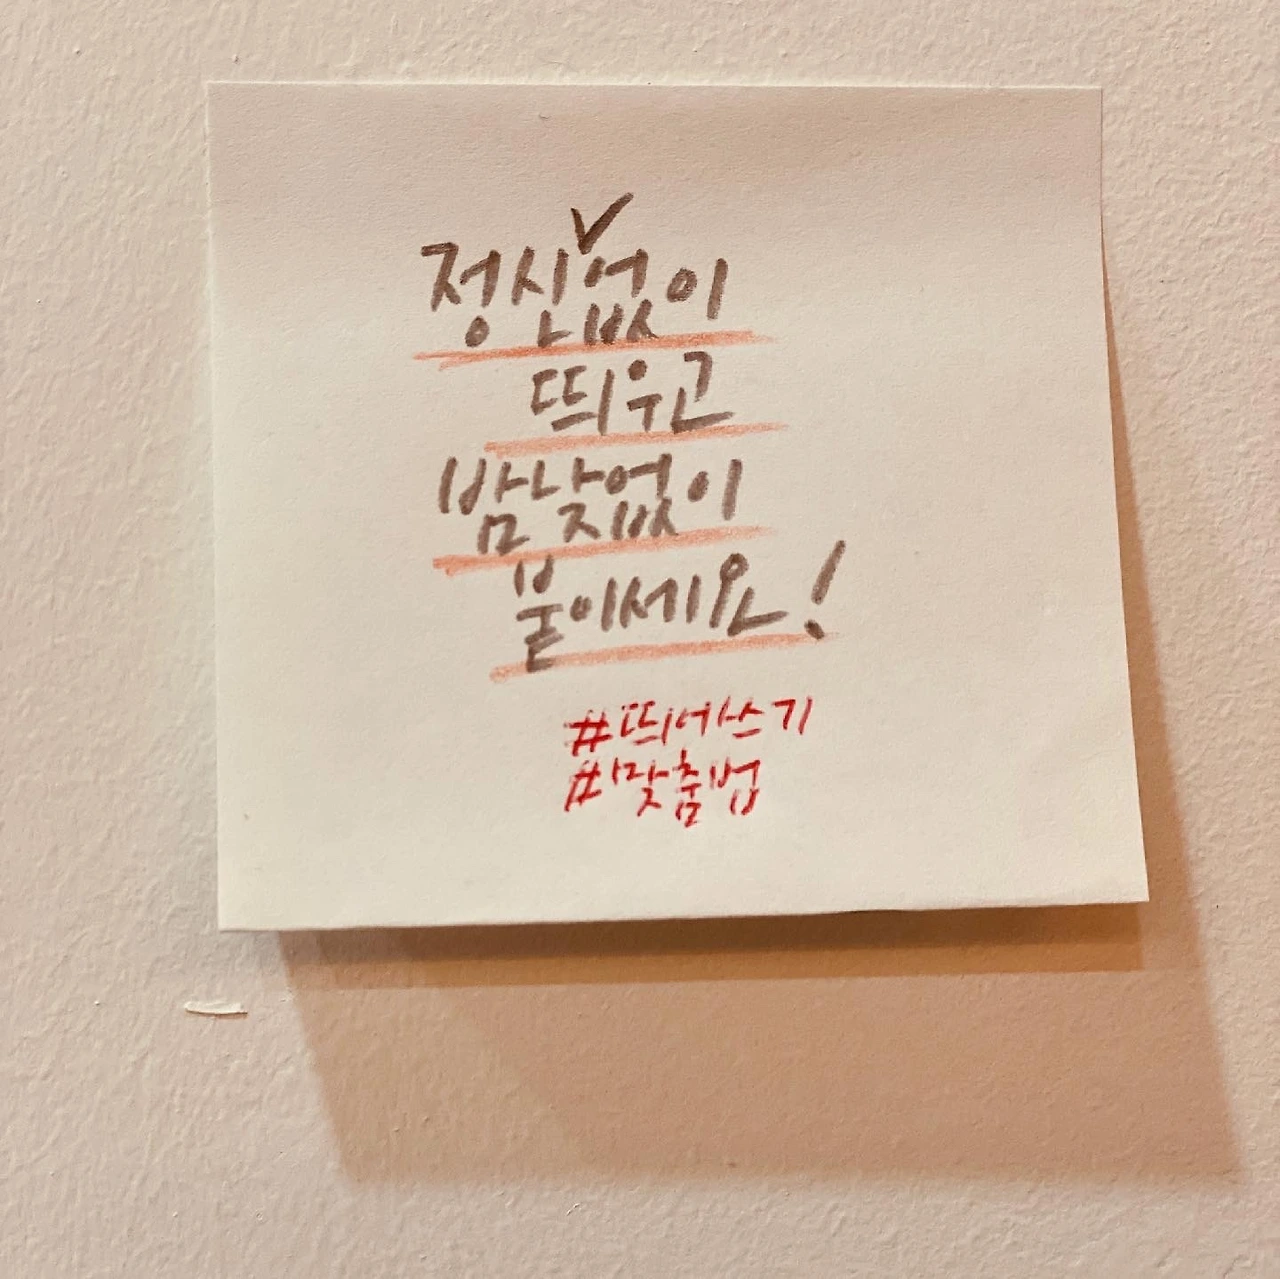 정신∨없이
띄우고
밤낮없이
붙이세요!
#띄어쓰기
#맞춤법